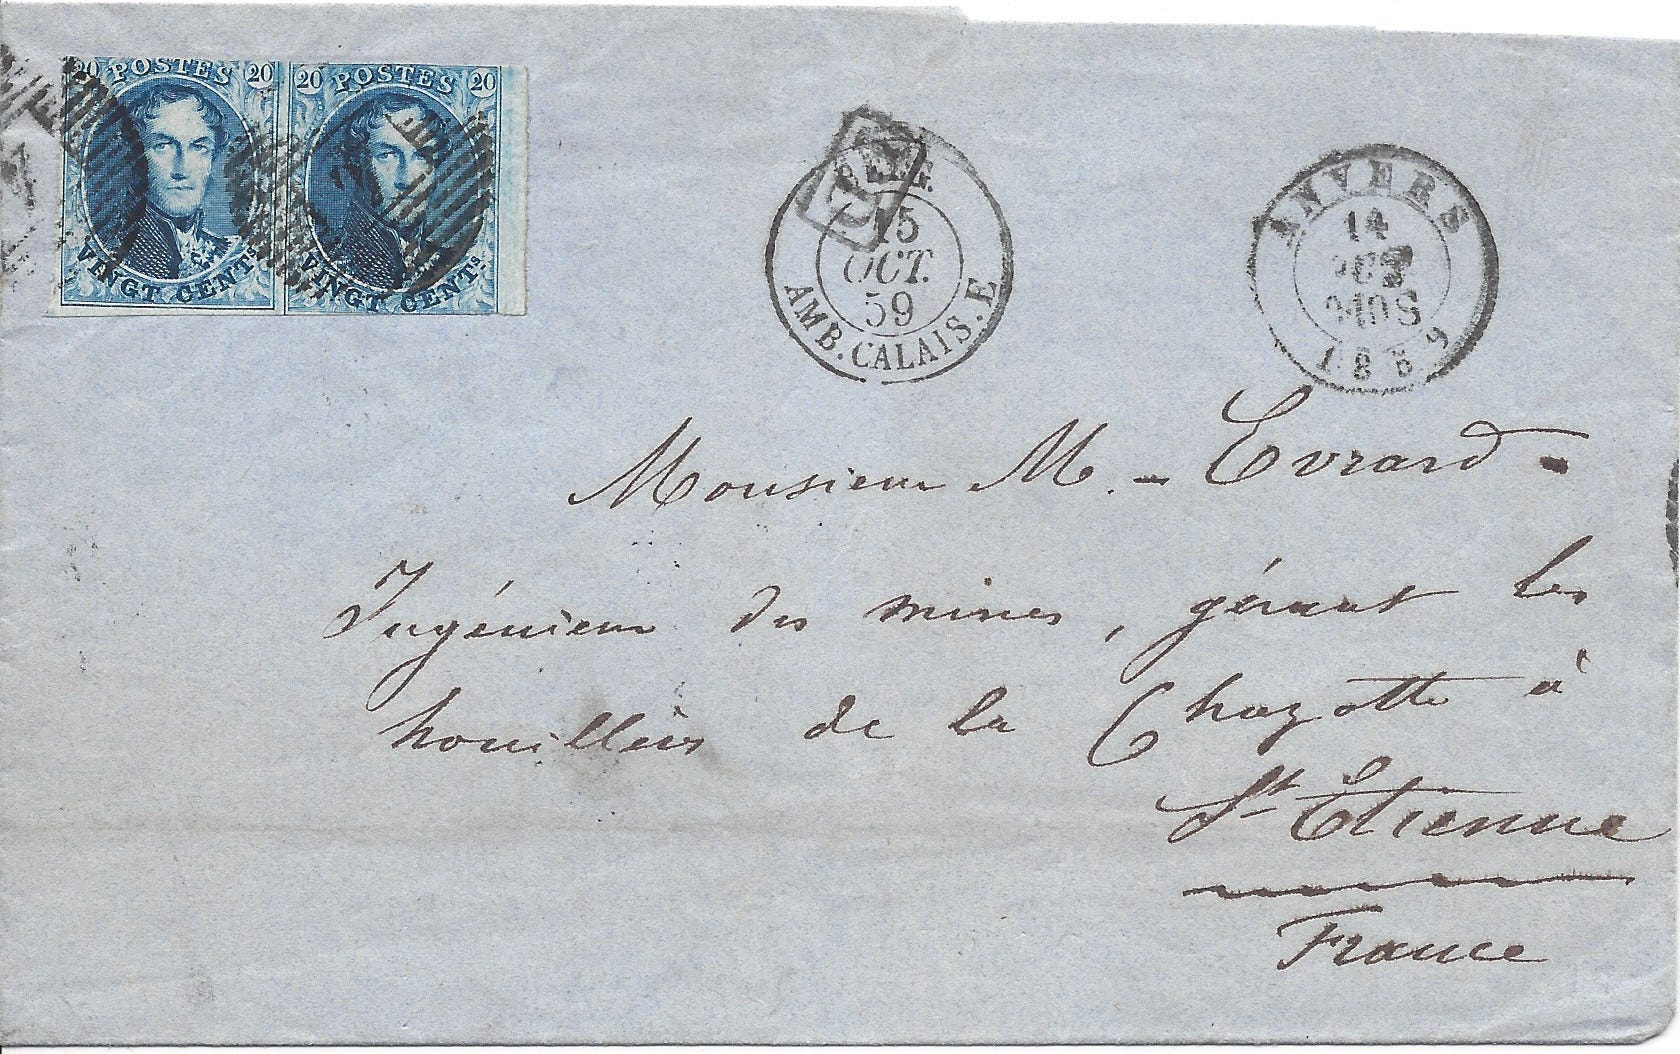 20 POSTES 20
VINGT CENTS
20 POSTES 20
VINGT CENTS
PD
BELG.
15
OCT.
59
AMB. CALAIS. E
ANVERS
14
OCT
1859
Monsieur M. - Evrard -
Ingénieur des mines, gérant les
houillères de la Chazotte à
St Etienne
France